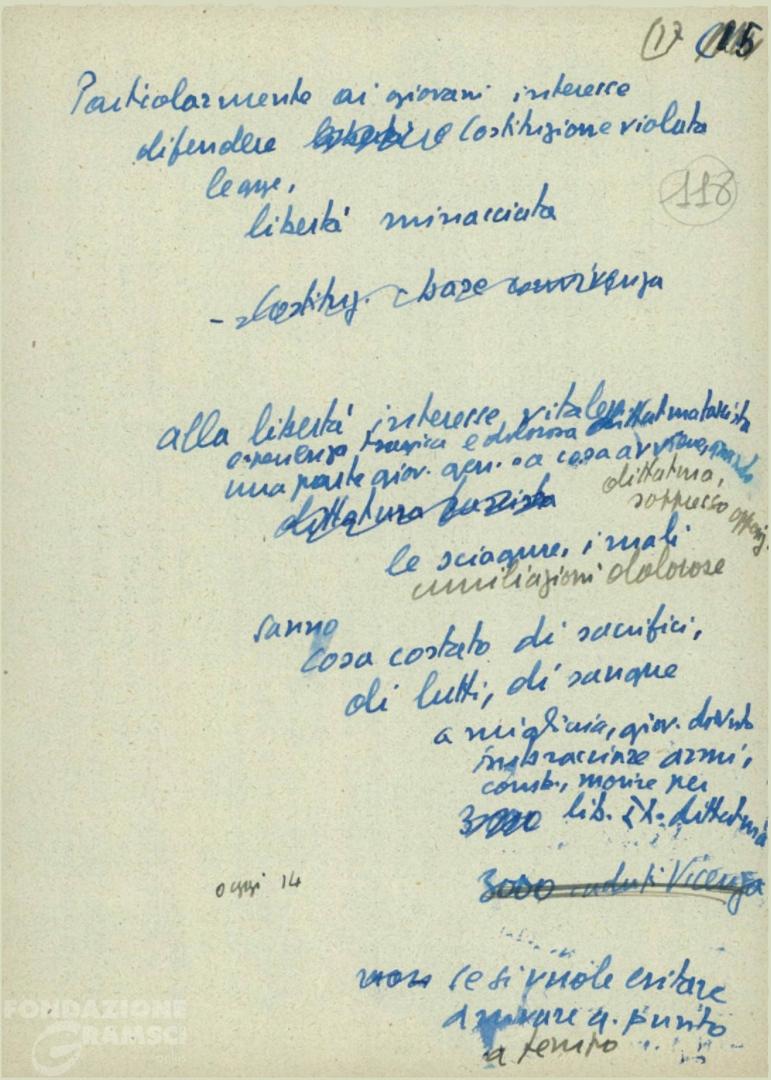 (17 15
Particolarmente ai giovani interesse
difendere Costituzione violata
legge,
118
libertà minacciata
- Costituz. base convivenza
alla libertà interesse vitale
esperienza tragica e dolorosa
una parte giov. gen. sa cosa avviene, quando
dittatura,
soppresso opposiz.
dittatura fascista
le sciagure, i mali
umiliazioni dolorose
sanno
cosa costato di sacrifici,
di lutti, di sangue
a migliaia, giov. dovuto
imbracciare armi,
comb., morire per
3000 lib. dittatura
oggi 14
3000 caduti Vicenza
se si vuole evitare
arrivare q. punto
a tempo
FONDAZIONE
GRAMSCI